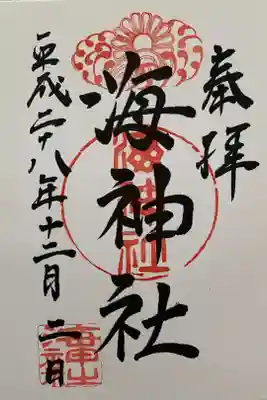 奉拝
海神社
平成二十八年十二月二日